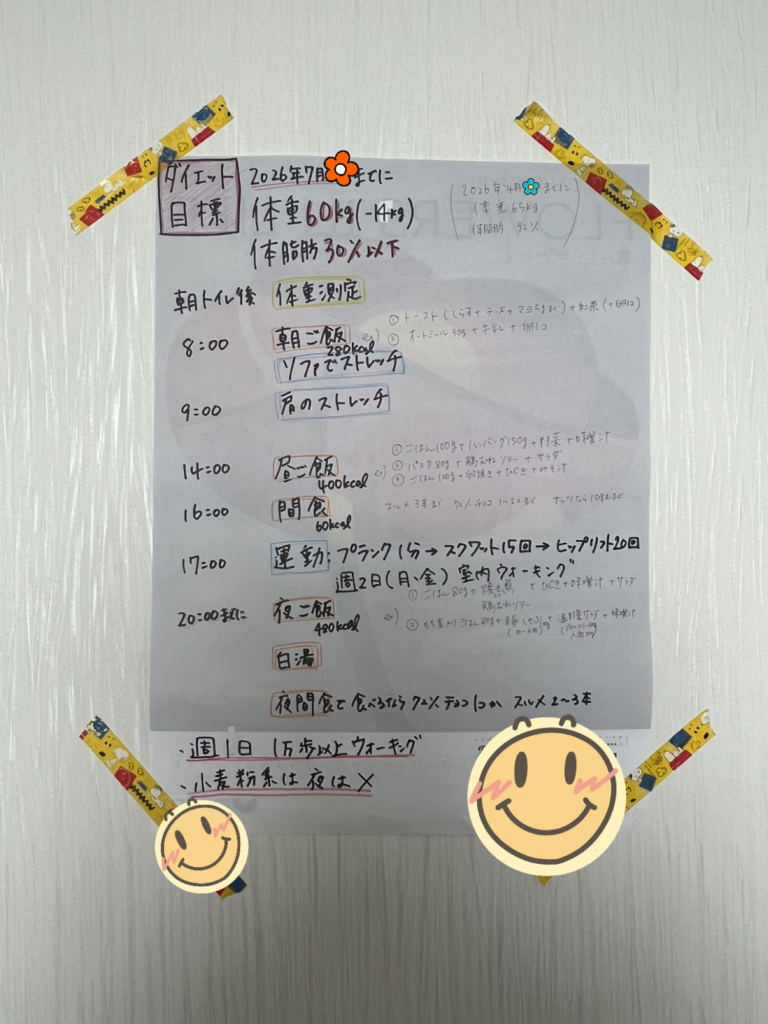 ダイエット
目標
2026年7月 までに
体重60kg(-14kg)
体脂肪30%以下
2026年4月 までに
体重65kg
体脂肪 32%
朝トイレ後 体重測定
8:00 朝ご飯 ex)
280kcal
① トースト(しらす+チーズ+マヨ5gまで)+紅茶(+卵1コ)
② オートミール30g+牛乳+卵1コ
ソファでストレッチ
9:00 肩のストレッチ
14:00 昼ご飯 ex)
400kcal
① ごはん100g+ハンバーグ150g+野菜+味噌汁
② パスタ80g+鶏むねソテー+サラダ
③ ごはん100g+卵焼き+ひじき+みそ汁
16:00 間食 スルメ3本まで 72%チョコ1〜2コまで ナッツなら10gまで
60kcal
17:00 運動:プランク1分→スクワット15回→ヒップリフト20回
週2日(月、金)室内ウォーキング
20:00までに 夜ご飯 ex)
480kcal
① ごはん80g+焼き魚 +ひじき+味噌汁+サラダ
鶏むねソテー
② もち麦入りごはん80g+豚 +温野菜サラダ+味噌汁
白湯
夜間食で食べるなら72%チョコ1コか スルメ2〜3本
・週1日 1万歩以上ウォーキング
・小麦粉系は夜は×